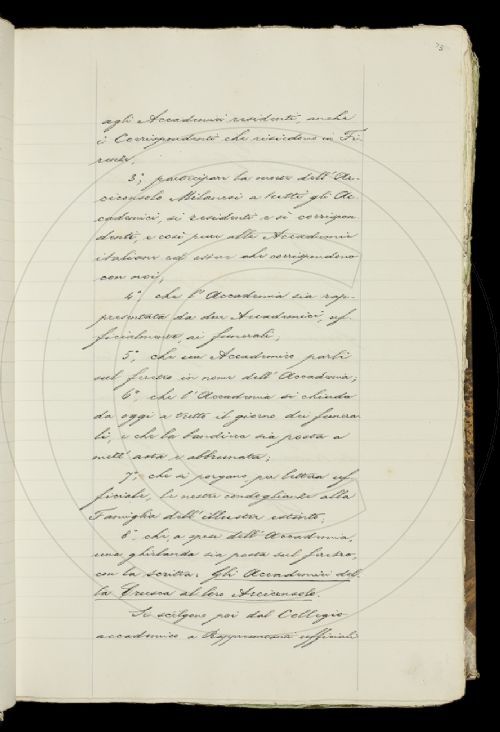 73
agli Accademici residenti, anche
i Corrispondenti che risiedono in Fi-
renze,
3º, partecipare la morte dell'Ar-
ciconsolo Milanesi a tutti gli Ac-
cademici, si residenti e sì corrispon
denti, e così pure alle Accademie
italiane ed estere che corrispondono
con noi;
4º, che l'Accademia sia rap-
presentata da due Accademici, uf-
ficialmente, ai funerali;
5º, che un Accademico parli
sul feretro in nome dell'Accademia;
6º, che l'Accademia si chiuda
da oggi a tutto il giorno dei funera
li, e che la bandiera sia posta a
mezz'asta e abbrunata;
7º, che si porgano per lettera uf-
ficiale, le nostre condoglianze alla
Famiglia dell'illustre estinto;
8º, che, a spese dell'Accademia,
una ghirlanda sia posta sul feretro,
con la scritta: Gli Accademici del-
la Crusca al loro Arciconsolo.
Si scelgono poi dal Collegio
accademico a Rappresentanti ufficiali